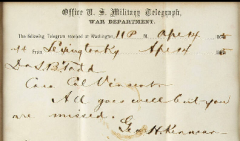 Office U. S. Military Telegraph,
WAR DEPARTMENT.
The following Telegram received at Washington, M. Apr 14 186
From Lexington Ky Apr 14 186
Dr L B Todd
Care Col Vincent
All goes well but you
are missed.
Geo H.